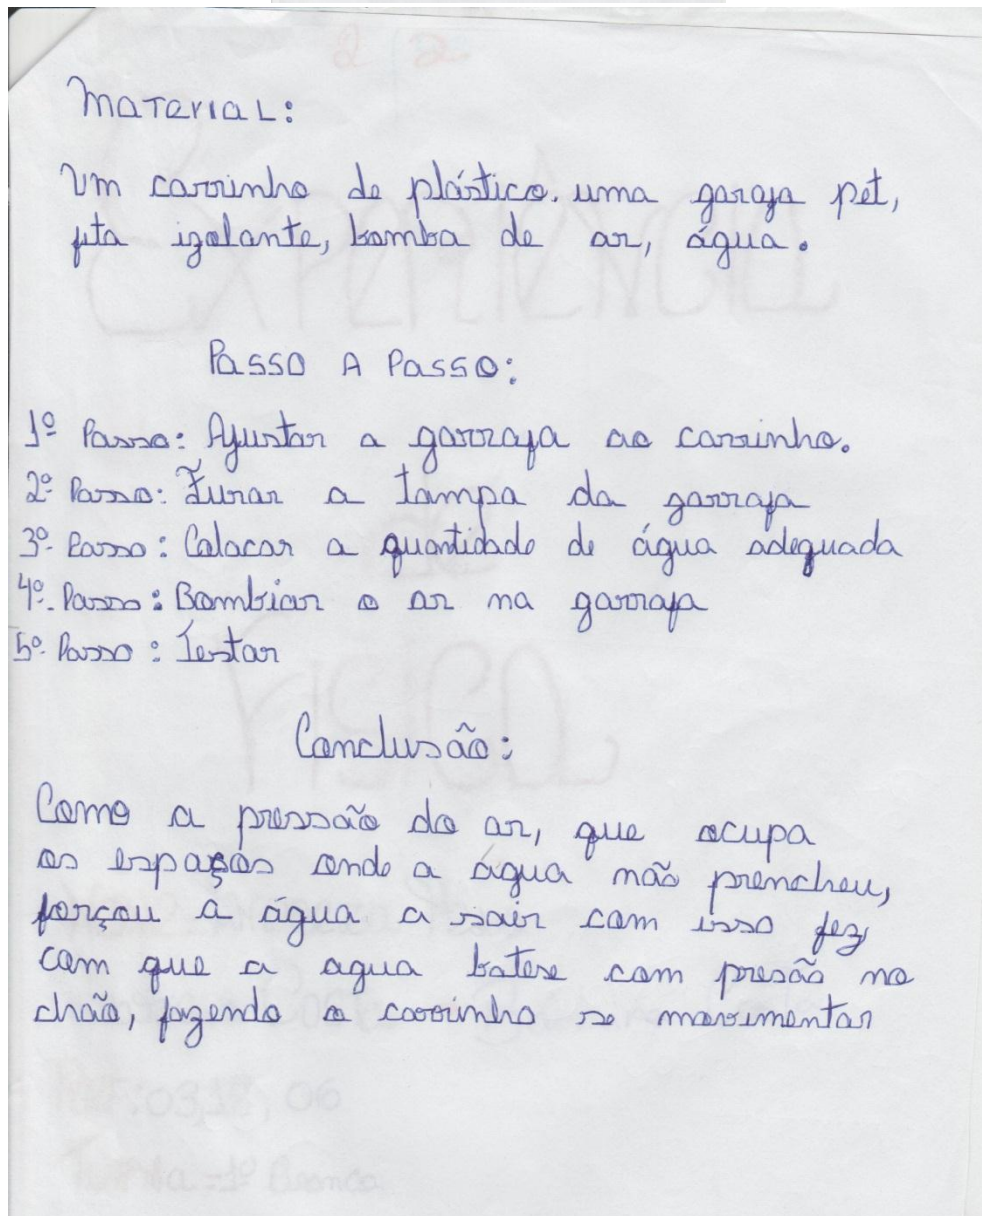 Material:
Um carrinho de plástico. uma garaja pet,
fita izolante, bomba de ar, água.
Passo A Passo:
1º Passo: Ajustar a garrafa ao carrinho.
2º Passo: Furar a tampa da garrafa
3º Passo: Colocar a quantidade de água adequada
4º Passo: Bombiar o ar na garrafa
5º Passo: Testar
Conclusão:
Como a pressão do ar, que ocupa
os espaços onde a água não prencheu,
forçou á água a sair com isso fez
com que a agua batese com presão no
chão, fazendo o carrinho se movimentar